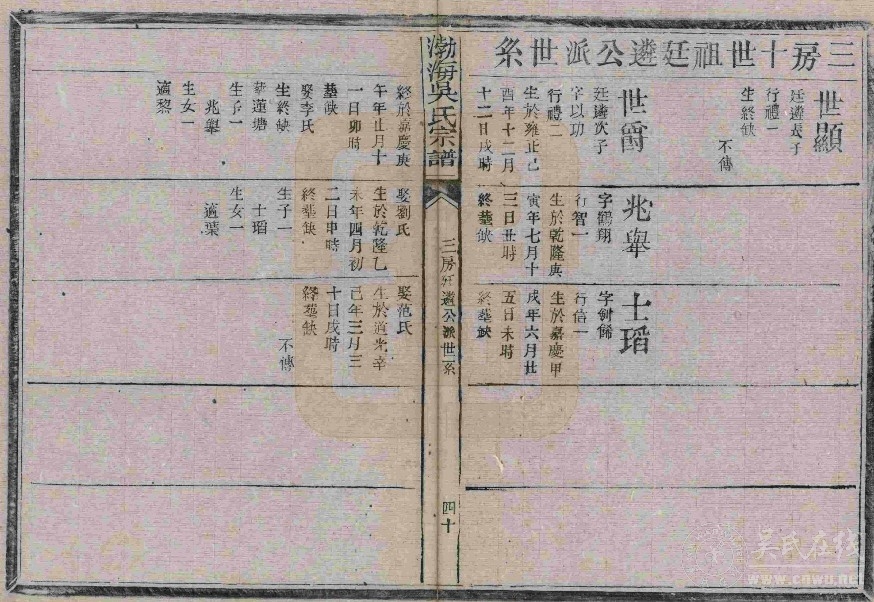 三房十世祖廷遴公派世系
世顯
廷遴長子
行禮一
生終缺
不傳
世爵
廷遴次子
字以功
行禮二
生於雍正己
酉年十二月
十二日戌時
兆舉
字鶴翔
行智一
生於乾隆庚
寅年七月十
三日丑時
終塟缺
士瑫
行信一
生於嘉慶甲
戌年六月廿
五日未時
終塟缺
渤海吳氏宗譜
三房廷遴公派世系
四十
終於嘉慶庚
午年正月十
一日卯時
塟缺
娶李氏
生終缺
塟蓮塘
生子一
兆舉
生女一
適黎
娶劉氏
生於乾隆乙
未年四月初
二日申時
終塟缺
生子一
士瑫
生女一
適葉
娶范氏
生於道光辛
己年三月三
十日戌時
終塟缺
不傳
吴氏在线
www.cnwu.net